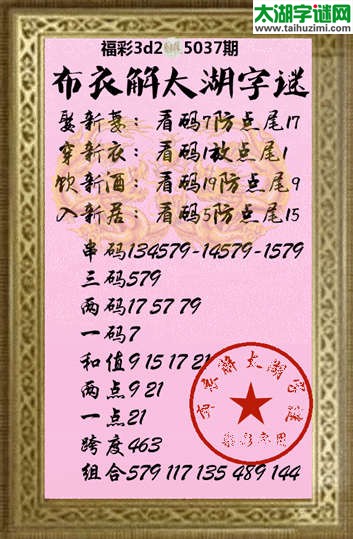 太湖字谜网
www.taihuzimi.com
福彩3d2 5037期
布衣解太湖字谜
娶新妻：看码7防点尾17
穿新衣：看码1放点尾1
饮新酒：看码19防点尾9
入新居：看码5防点尾15
串码134579-14579-1579
三码579
两码17 57 79
一码7
和值9 15 17 21
两点9 21
一点21
跨度463
组合579 117 135 489 144
布衣解太湖字谜